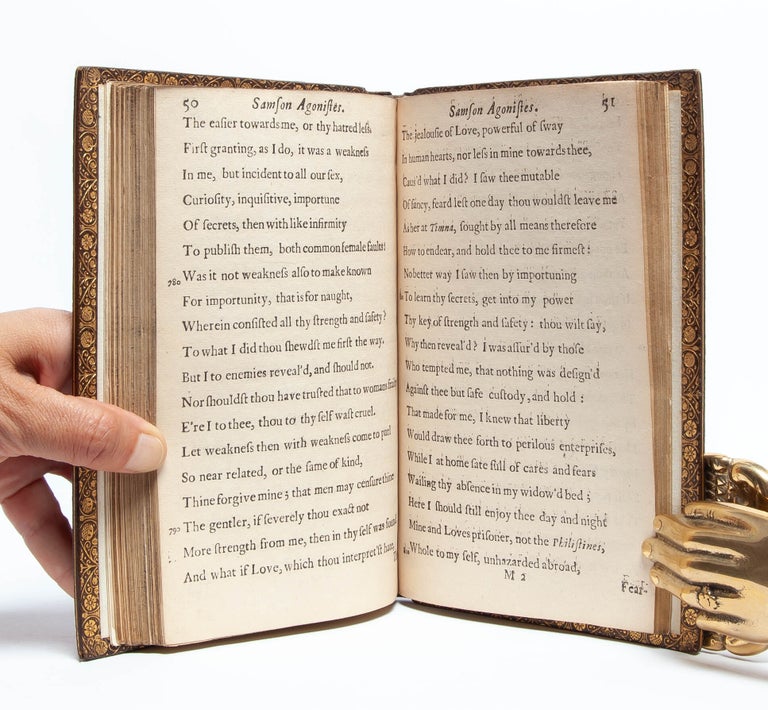 50 Samſon Agoniſtes.
The eaſier towards me, or thy hatred leſs.
Firſt granting, as I do, it was a weakneſs
In me, but incident to all our ſex,
Curioſity, inquiſitive, importune
Of ſecrets, then with like infirmity
To publiſh them, both common female faults:
780 Was it not weakneſs alſo to make known
For importunity, that is for naught,
Wherein conſiſted all thy ſtrength and ſafety?
To what I did thou ſhewdſt me firſt the way.
But I to enemies reveal'd, and ſhould not.
Nor ſhouldſt thou have truſted that to womans
E're I to thee, thou to thy ſelf waſt cruel.
Let weakneſs then with weakneſs come to
So near related, or the ſame of kind,
Thine forgive mine; that men may cenſure thine
790 The gentler, if ſeverely thou exact not
More ſtrength from me, then in thy ſelf was found.
And what if Love, which thou interpret'ſt hate,
Samſon Agoniſtes. 51
The jealouſie of Love, powerful of ſway
In human hearts, nor leſs in mine towards thee,
Caus'd what I did? I ſaw thee mutable
Of fancy, feard leſt one day thou wouldſt leave me
As her at Timna, ſought by all means therefore
How to endear, and hold thee to me firmeſt:
No better way I ſaw then by importuning
To learn thy ſecrets, get into my power
Thy key of ſtrength and ſafety: thou wilt ſay,
Why then reveal'd? I was aſſur'd by thoſe
Who tempted me, that nothing was deſign'd
Againſt thee but ſafe cuſtody, and hold:
That made for me, I knew that liberty
Would draw thee forth to perilous enterpriſes,
While I at home ſate full of cares and fears
Wailing thy abſence in my widow'd bed;
Here I ſhould ſtill enjoy thee day and night
Mine and Loves priſoner, not the Philiſtines,
Whole to my ſelf, unhazarded abroad,
M 2
Fear-